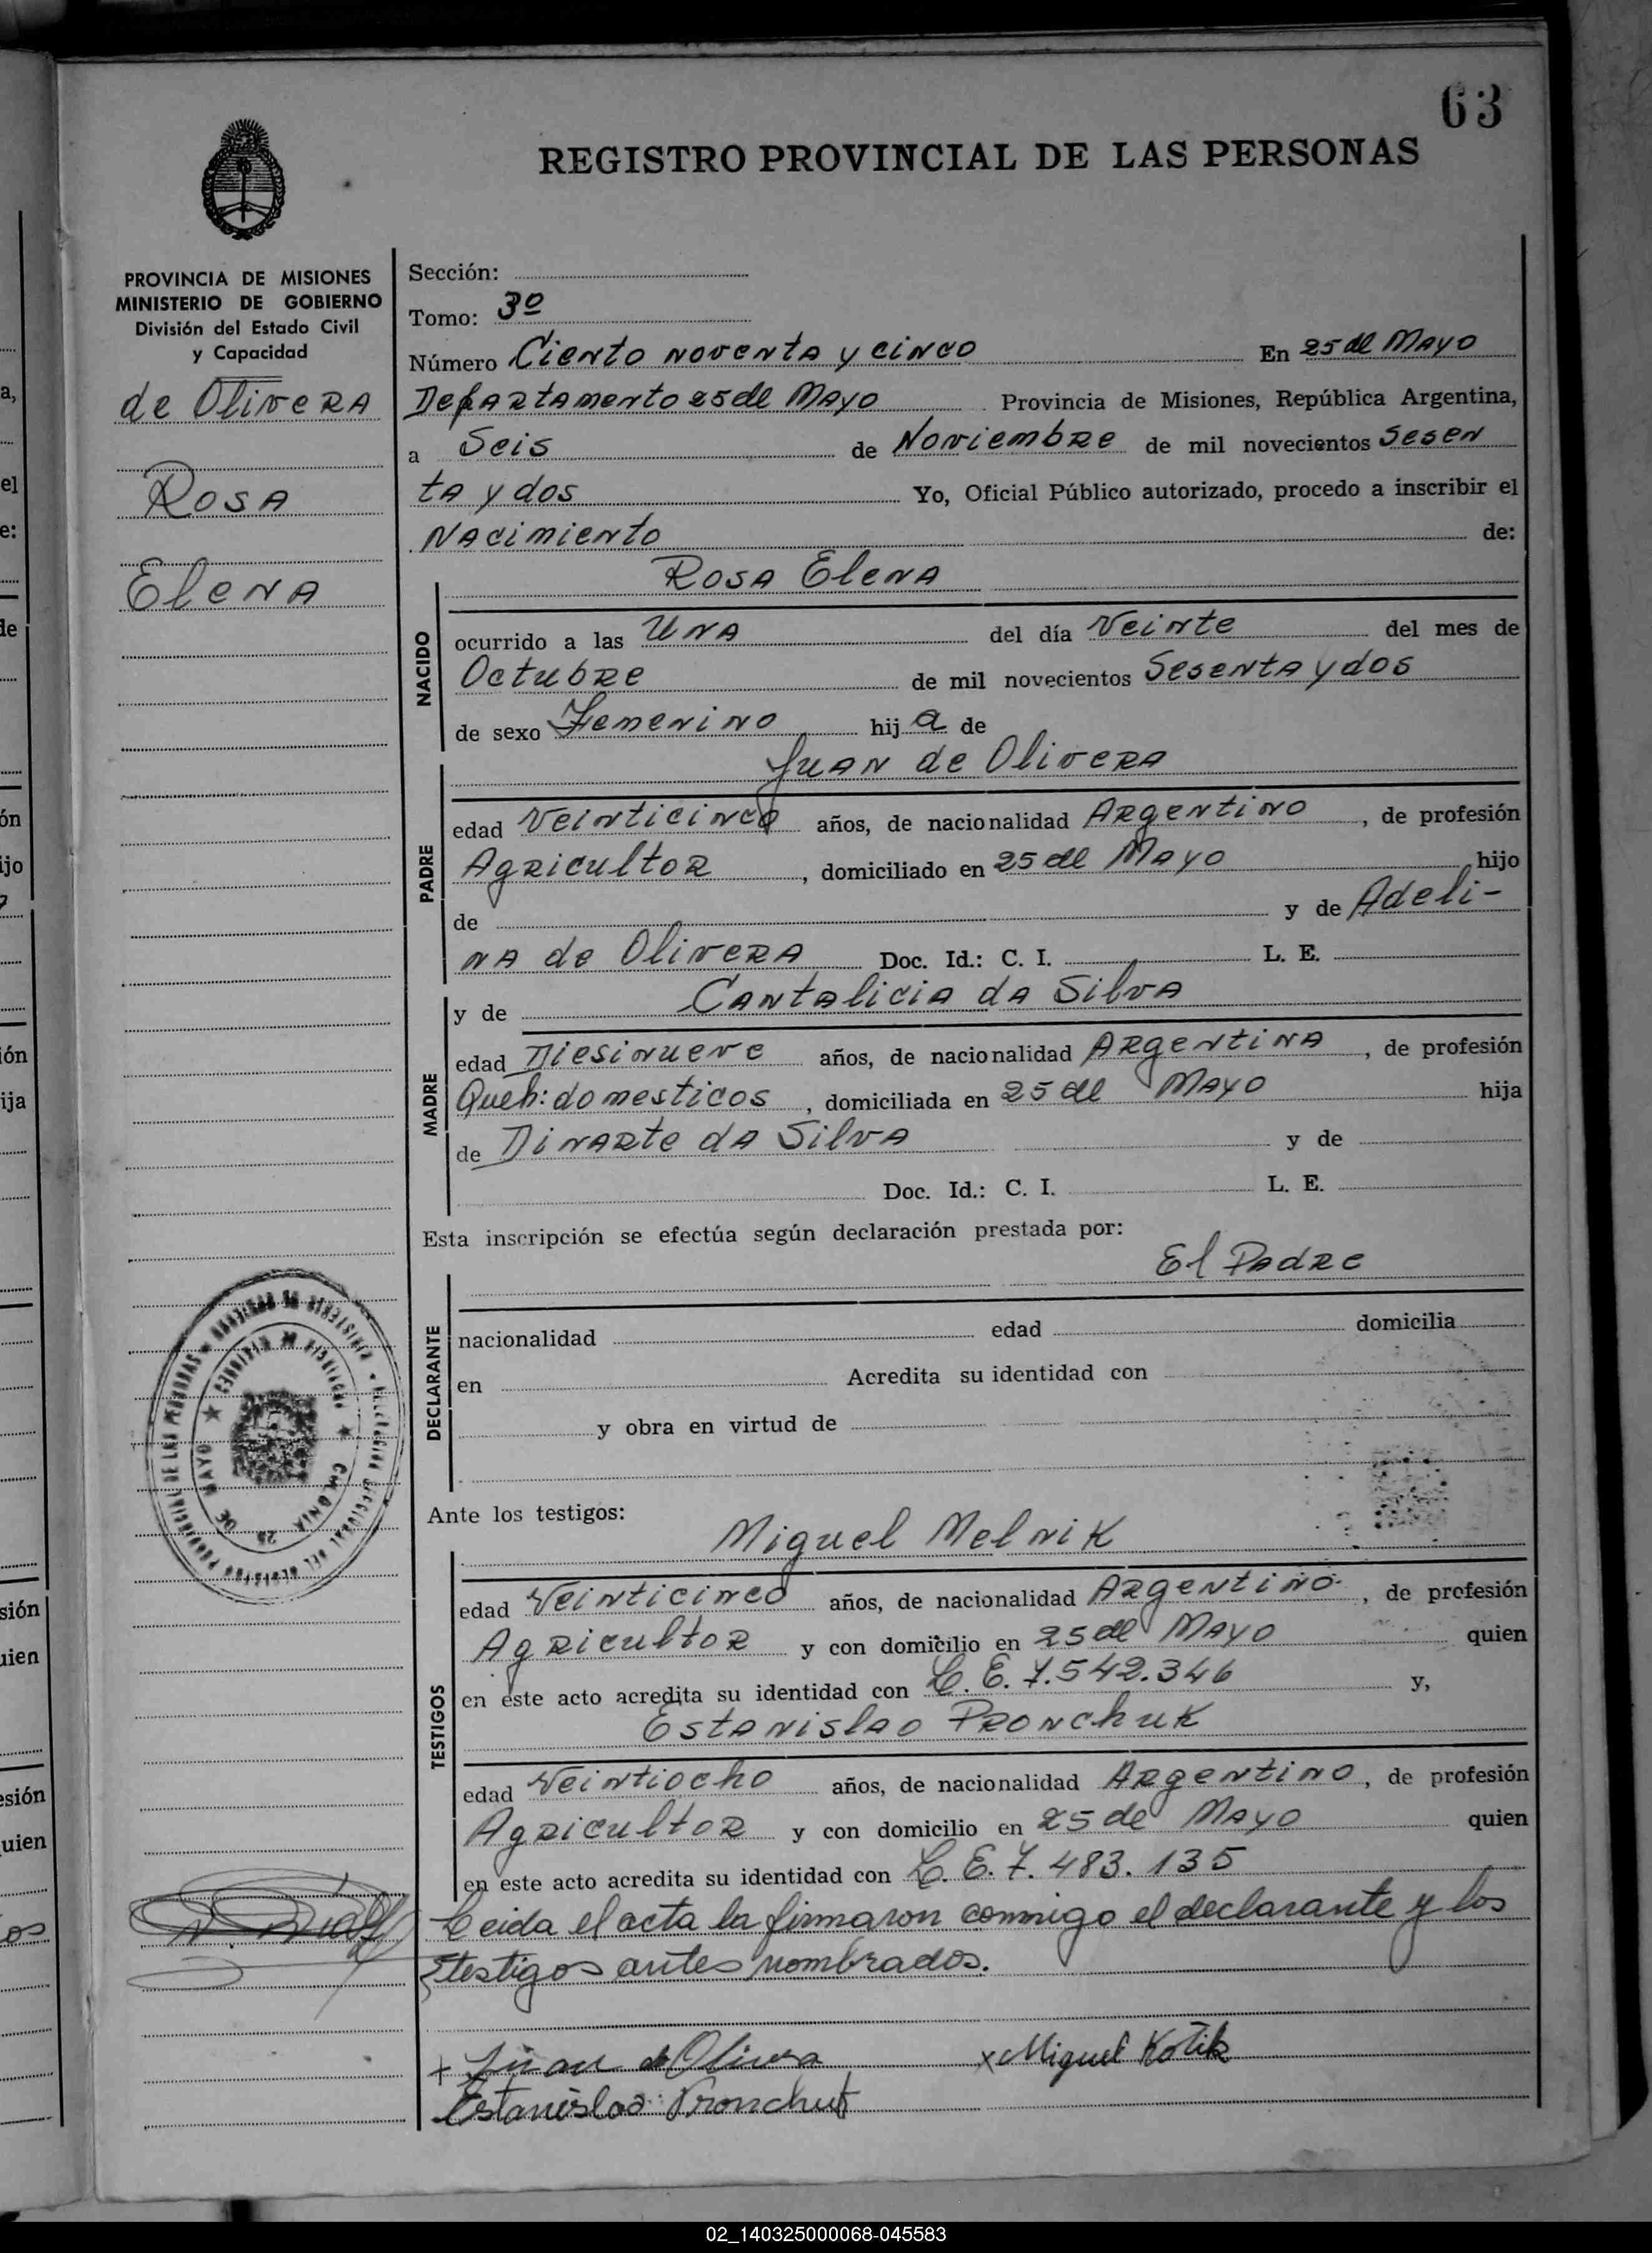 63
REGISTRO PROVINCIAL DE LAS PERSONAS
PROVINCIA DE MISIONES
MINISTERIO DE GOBIERNO
División del Estado Civil
y Capacidad
de Olivera
Rosa
Elena
Sección:
Tomo: 3º
Número Ciento noventa y cinco En 25 de Mayo
Departamento 25 de Mayo Provincia de Misiones, República Argentina,
a Seis de Noviembre de mil novecientos Sesen
ta y dos Yo, Oficial Público autorizado, procedo a inscribir el
Nacimiento de:
Rosa Elena
NACIDO
ocurrido a las Una del día Veinte del mes de
Octubre de mil novecientos Sesenta y dos
de sexo Femenino hij a de
Juan de Olivera
PADRE
edad Veinticinco años, de nacionalidad Argentino, de profesión
Agricultor, domiciliado en 25 de Mayo hijo
de y de Adeli-
na de Olivera Doc. Id.: C. I. L. E.
y de Cantalicia da Silva
MADRE
edad Diesinueve años, de nacionalidad Argentina, de profesión
Queh: domesticos, domiciliada en 25 de Mayo hija
de Dinarte da Silva y de
Doc. Id.: C. I. L. E.
Esta inscripción se efectúa según declaración prestada por:
El Padre
DECLARANTE
nacionalidad edad domicilia
en Acredita su identidad con
y obra en virtud de
Ante los testigos:
Miguel Melnik
TESTIGOS
edad Veinticinco años, de nacionalidad Argentino, de profesión
Agricultor y con domicilio en 25 de Mayo quien
en este acto acredita su identidad con L. E. 7.542.346 y,
Estanislao Pronchuk
edad Veintiocho años, de nacionalidad Argentino, de profesión
Agricultor y con domicilio en 25 de Mayo quien
en este acto acredita su identidad con L. E. 7.483.135
Leida el acta la firmaron conmigo el declarante y los
testigos antes nombrados.
+ Juan de Olivera x Miguel Kotik
Estanislao Pronchuk
COLONIA 25 DE MAYO
02_140325000068-045583